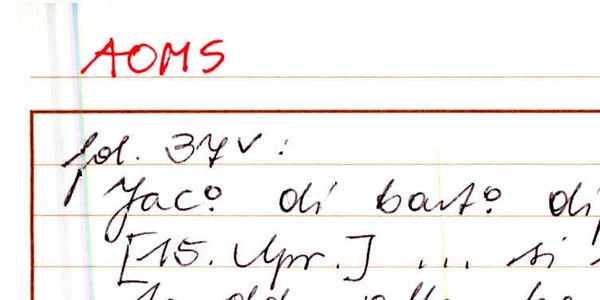 AOMS
fol. 37v:
Jac° di bart° di
[15. Apr.] ... si